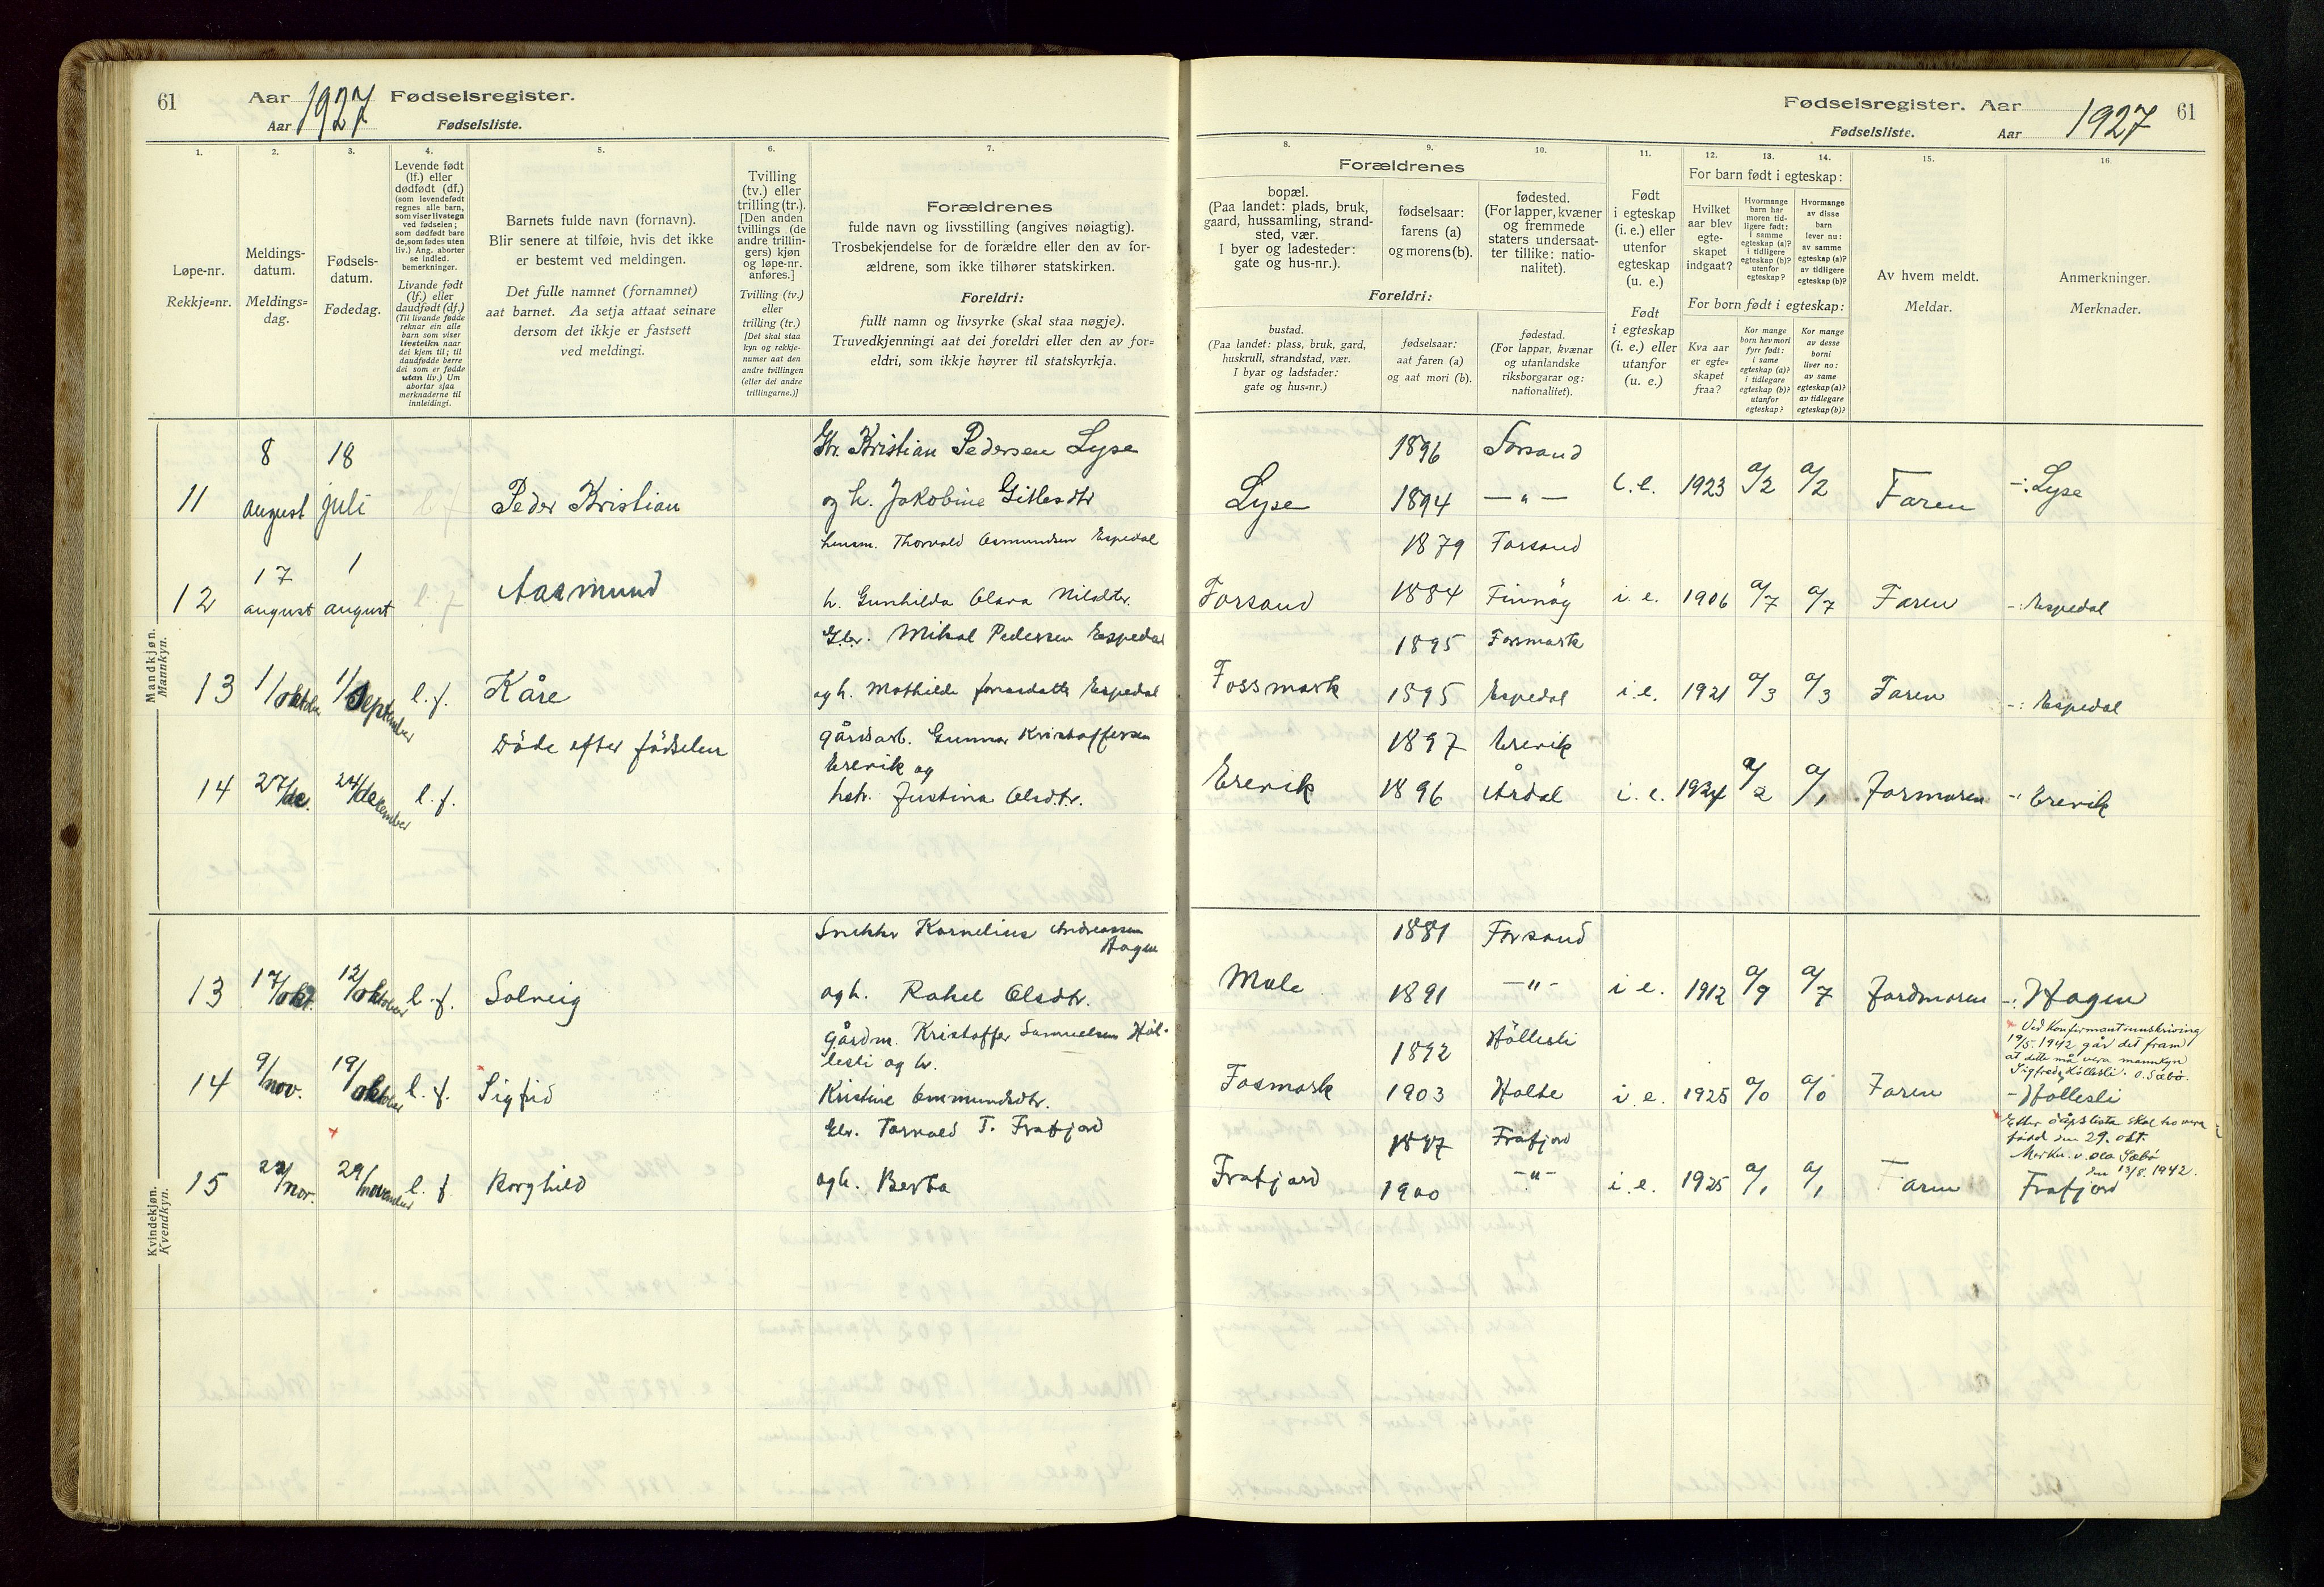 61
Aar 1927 Fødselsregister.
Aar Fødselsliste.
1.
2.
3.
4.
5.
6.
7.
Løpe-nr.
Rekkje=nr.
Meldings-
datum.
Meldings=
dag.
Fødsels-
datum.
Fødedag.
Levende født
(lf.) eller
dødfødt (df.)
(som levendefødt
regnes alle barn,
som viser livstegn
ved fødselen;
som dødfødt bare
de, som fødes uten
liv.) Ang. aborter
se indled.
bemerkninger.
Livande født
(lf.) eller
daudfødt (df.)
(Til livande fødde
reknar ein alle
barn som viser
livsteikn naar
dei kjem til; til
daudfødde berre
dei som er fødde
utan liv.) Um
abortar sjaa
merknaderne til
innleidingi.
Barnets fulde navn (fornavn).
Blir senere at tilføie, hvis det ikke
er bestemt ved meldingen.
Det fulle namnet (fornamnet)
aat barnet. Aa setja attaat seinare
dersom det ikkje er fastsett
ved meldingi.
Tvilling
(tv.) eller
trilling (tr.).
[Den anden
tvillings (de
andre trillin-
gers) kjøn
og løpe-nr.
anføres.]
Tvilling (tv.)
eller
trilling (tr.)
[Det skal staa
kyn og rekkje-
numer aat den
andre tvillingen
(eller dei andre
trillingarne.)]
Forældrenes
fulde navn og livsstilling (angives nøiagtig).
Trosbekjendelse for de forældre eller den av for-
ældrene, som ikke tilhører statskirken.
Foreldri:
fullt namn og livsyrke (skal staa nøgje).
Truvedkjenningi aat dei foreldri eller den av for=
eldri, som ikkje høyrer til statskyrkja.
Fødselsregister. Aar 1927 61
Fødselsliste. Aar
8.
9.
10.
11.
12.
13.
14.
15.
16.
Forældrenes
bopæl.
(Paa landet: plads, bruk,
gaard, hussamling, strand-
sted, vær.
I byer og ladesteder:
gate og hus-nr.).
fødselsaar:
farens (a)
og morens (b).
fødested.
(For lapper, kvæner
og fremmede
staters undersaat-
ter tillike: natio-
nalitet).
Foreldri:
bustad.
(Paa landet: plass, bruk, gard,
huskrull, strandstad, vær.
I byar og ladstader:
gate og hus=nr.)
fødselsaar:
aat faren (a)
og aat mori (b).
fødestad.
(For lappar, kvænar
og utanlandske
riksborgarar og:
nationalitet).
Født
i egteskap
(i. e.) eller
utenfor
egteskap
(u. e.)
Født
i egteskap
(i. e.) eller
utanfor
(u. e.)
For barn født i egteskap:
Hvilket
aar blev
egte-
skapet
indgaat?
Hvormange
barn har
moren tid-
ligere født:
i samme
egteskap (a)?
i tidligere
egteskap (b)?
utenfor
egteskap?
Hvormange
av disse
barn
lever nu:
av samme
egteskap (a)?
av tidligere
egteskap (b)?
For born født i egteskap:
Kva aar
er egte=
skapet
fraa?
Kor mange
born hev mori
fyrr født:
i same
egteskap (a)?
i tidlegare
egteskap (b)?
utanfor
egteskap?
Kor mange
av desse
borni
liver no:
av same
egteskap (a)?
av tidlegare
egteskap (b)?
Av hvem meldt.
Meldar.
Anmerkninger.
Merknader.
Mandkjøn.
Mannkyn.
Gbr. Kristian Pedersen Lyse 1896 Forsand
11 8 august 18 juli l f Peder Kristian og h. Jakobine Gitlesdtr Lyse 1894 — " — i. e. 1923 a/2 a/2 Faren -: Lyse
Lensm. Thorvald Asmundsen Espedal 1879 Forsand
12 17 august 1 august l. f Aasmund h. Gunhilda Olava Nilsdtr. Forsand 1884 Finnöy i. e. 1906 a/7 a/7 Faren -: Espedal
Gbr. Mikal Pedersen Espedal 1895 Fossmark
13 1/oktober 1/September l. f. Kåre og h. Mathilde Jonasdatter Espedal Fossmark 1895 Espedal i. e. 1921 a/3 a/3 Faren -: Espedal
Döde efter födselen gårdarb. Gunnar Kristoffersen 1897 Erevik
Erevik og
14 27/de. 24/december l. f. hstr. Justina Olsdtr. Erevik 1896 Årdal i. e. 1924 a/2 a/1 Jormoren -: Erevik
Kvindekjøn.
Kvendkyn.
Snekker Kornelius Andreassen 1881 Forsand
Hagen
13 17/okt. 12/oktober l. f. Solveig og h. Rakel Olsdtr. Mæle 1891 — " — i e. 1912 a/9 a/7 Jordmoren -: Hagen
gårdm. Kristoffer Samuelsen Höl- 1892 Höllesli
lesli og h.
Ved Konfirmantinnskriving
19/5. 1942 går det fram
at dette må vera mannkyn
Sigfred Höllesli. O. Sæbö.
14 9/nov. 19/oktober l. f. Sigfrid Kristine Ommundsdtr. Fosmark 1903 Holte i. e. 1925 a/0 a/0 Faren - Hollesli
Gbr. Torvald T. Frafjord Frafjord
Etter dåpslista skal ho vera
född den 29. okt.
Merkn. v. Ola Sæbö
den 13/8. 1942.
15 22/nov. 29/november l. f. Borghild og h. Berta Frafjord 1900 — " — i. e. 1925 a/1 a/1 Faren Frafjord